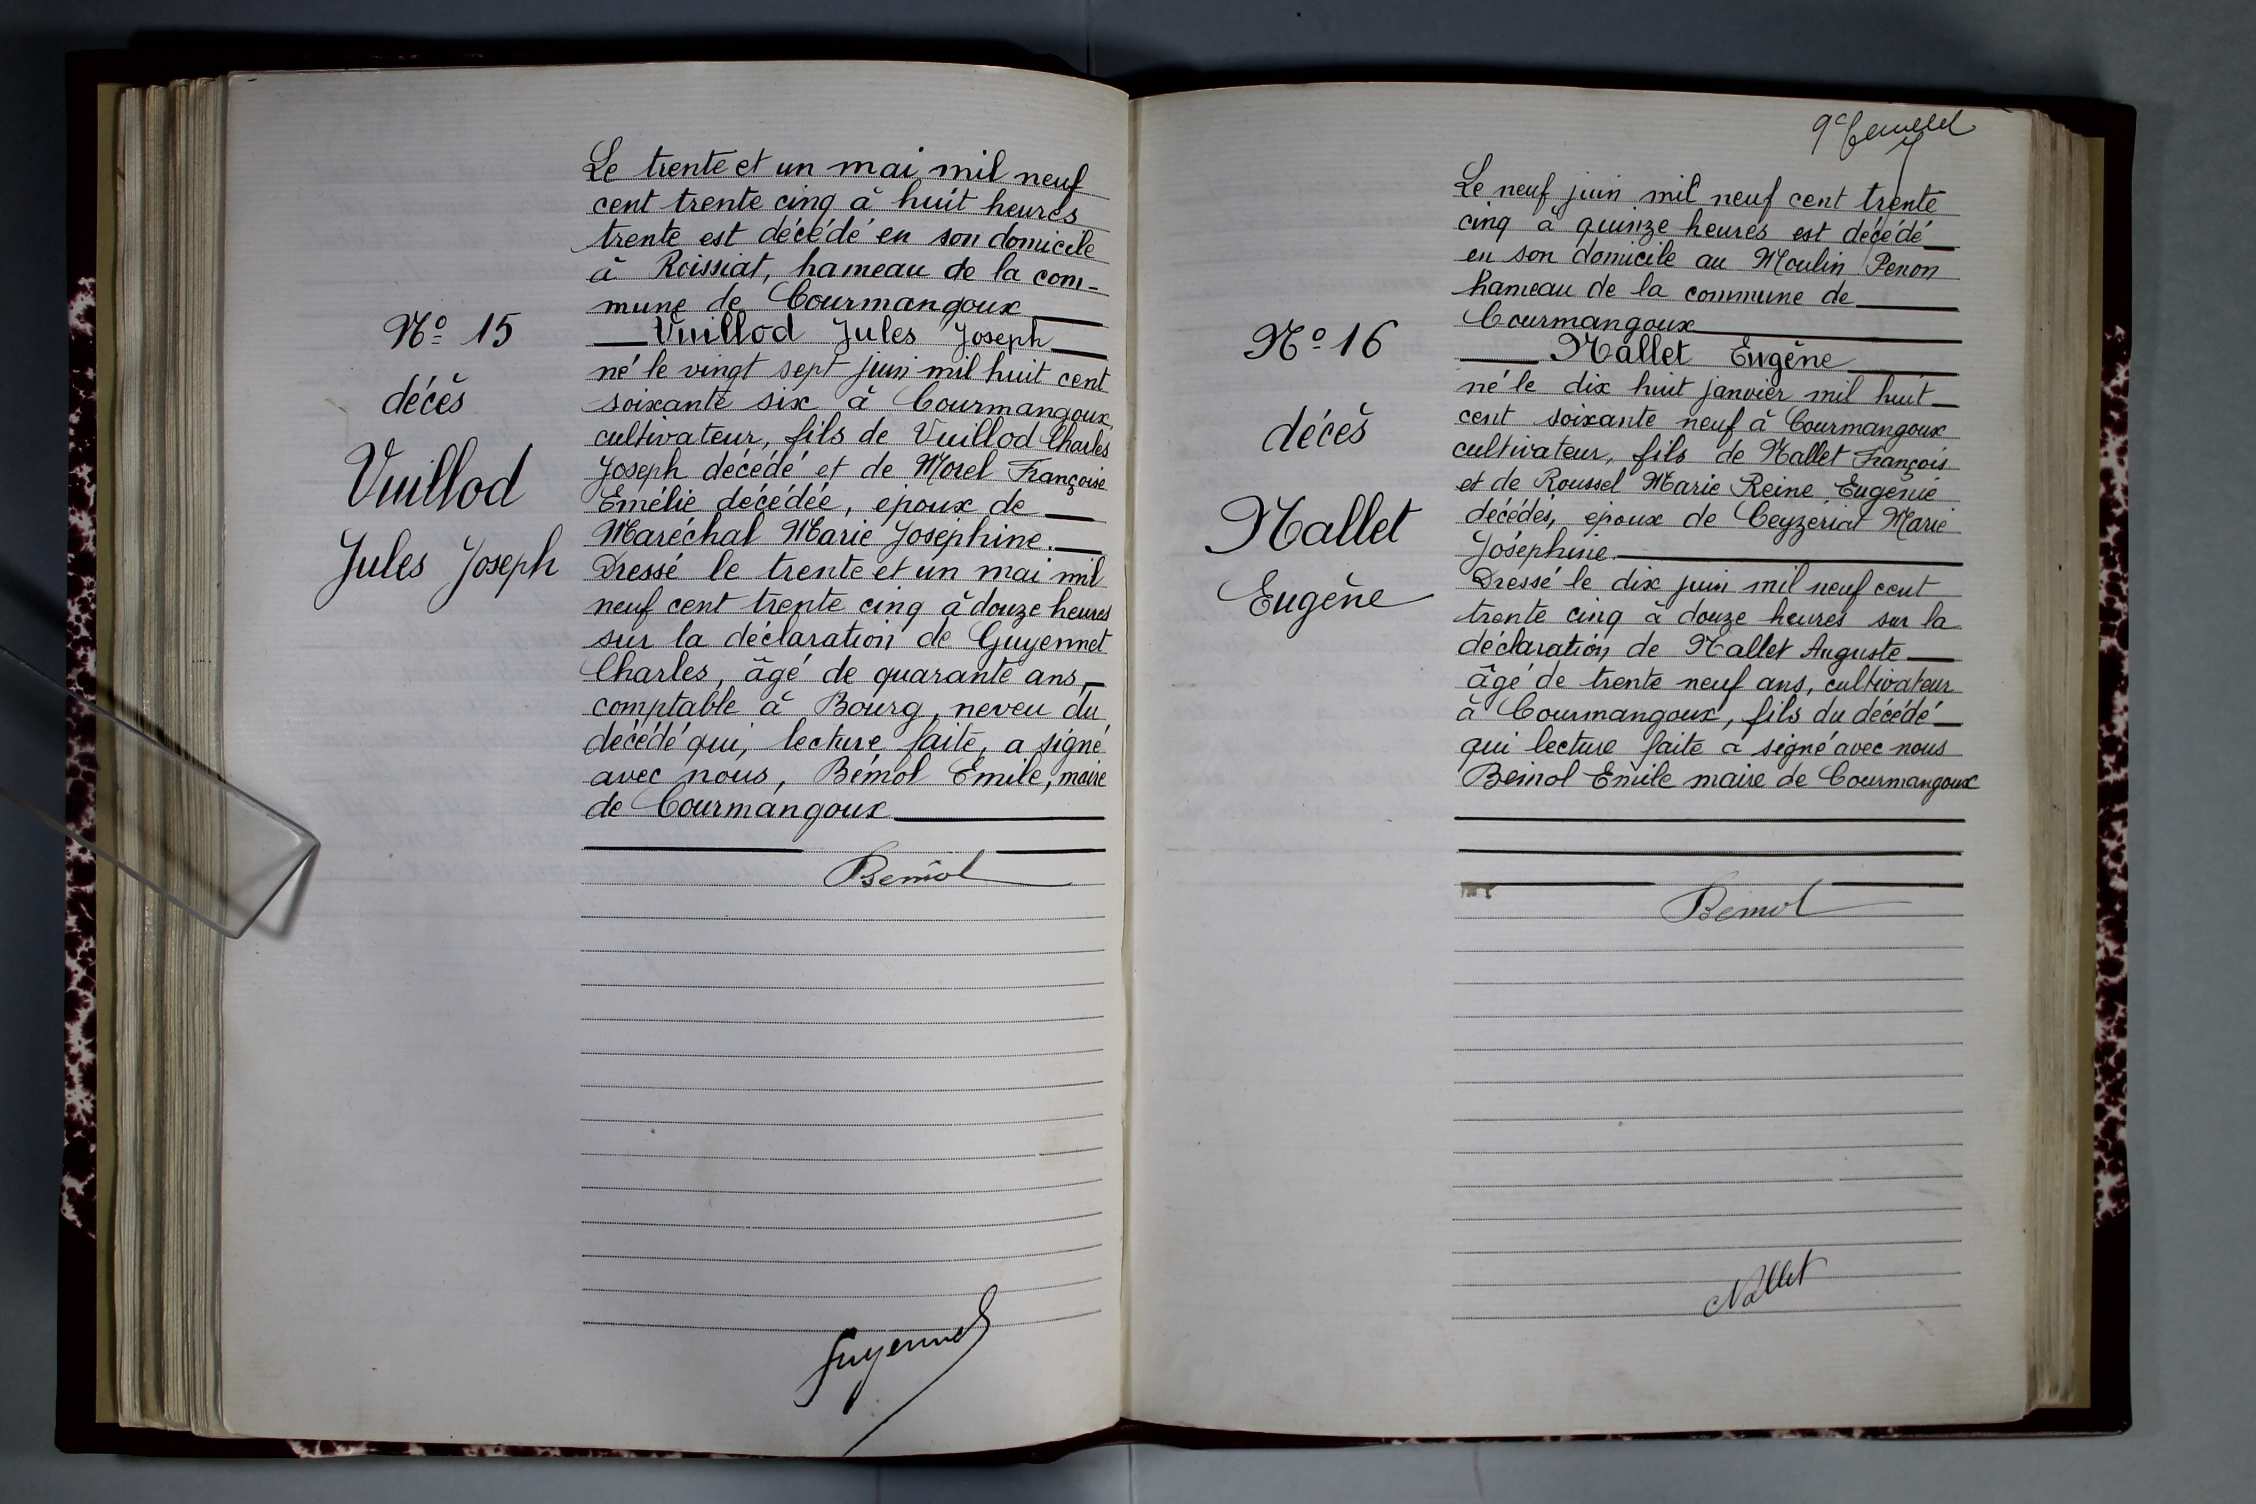 Nº 15
décès
Vuillod
Jules Joseph
Le trente et un mai mil neuf
cent trente cinq à huit heures
trente est décédé en son domicile
à Roissiat, hameau de la com-
mune de Courmangoux
Vuillod Jules Joseph
né le vingt sept juin mil huit cent
soixante six à Courmangoux,
cultivateur, fils de Vuillod Charles
Joseph décédé et de Morel Françoise
Emélie décédée, époux de
Maréchal Marie Joséphine.
Dressé le trente et un mai mil
neuf cent trente cinq à douze heures
sur la déclaration de Guyennet
Charles, âgé de quarante ans,
comptable à Bourg, neveu du
décédé qui, lecture faite, a signé
avec nous, Bémol Emile, maire
de Courmangoux
Bémol
Guyennet
9e feuillet
Nº 16
décès
Nallet
Eugène
Le neuf juin mil neuf cent trente
cinq à quinze heures est décédé
en son domicile au Moulin Penon
hameau de la commune de
Courmangoux
Nallet Eugène
né le dix huit janvier mil huit
cent soixante neuf à Courmangoux
cultivateur, fils de Nallet François
et de Roussel Marie Reine Eugénie
décédés, époux de Ceyzériat Marie
Joséphine.
Dressé le dix juin mil neuf cent
trente cinq à douze heures sur la
déclaration de Nallet Auguste
âgé de trente neuf ans, cultivateur
à Courmangoux, fils du décédé
qui lecture faite a signé avec nous
Bémol Emile maire de Courmangoux
Bémol
Nallet